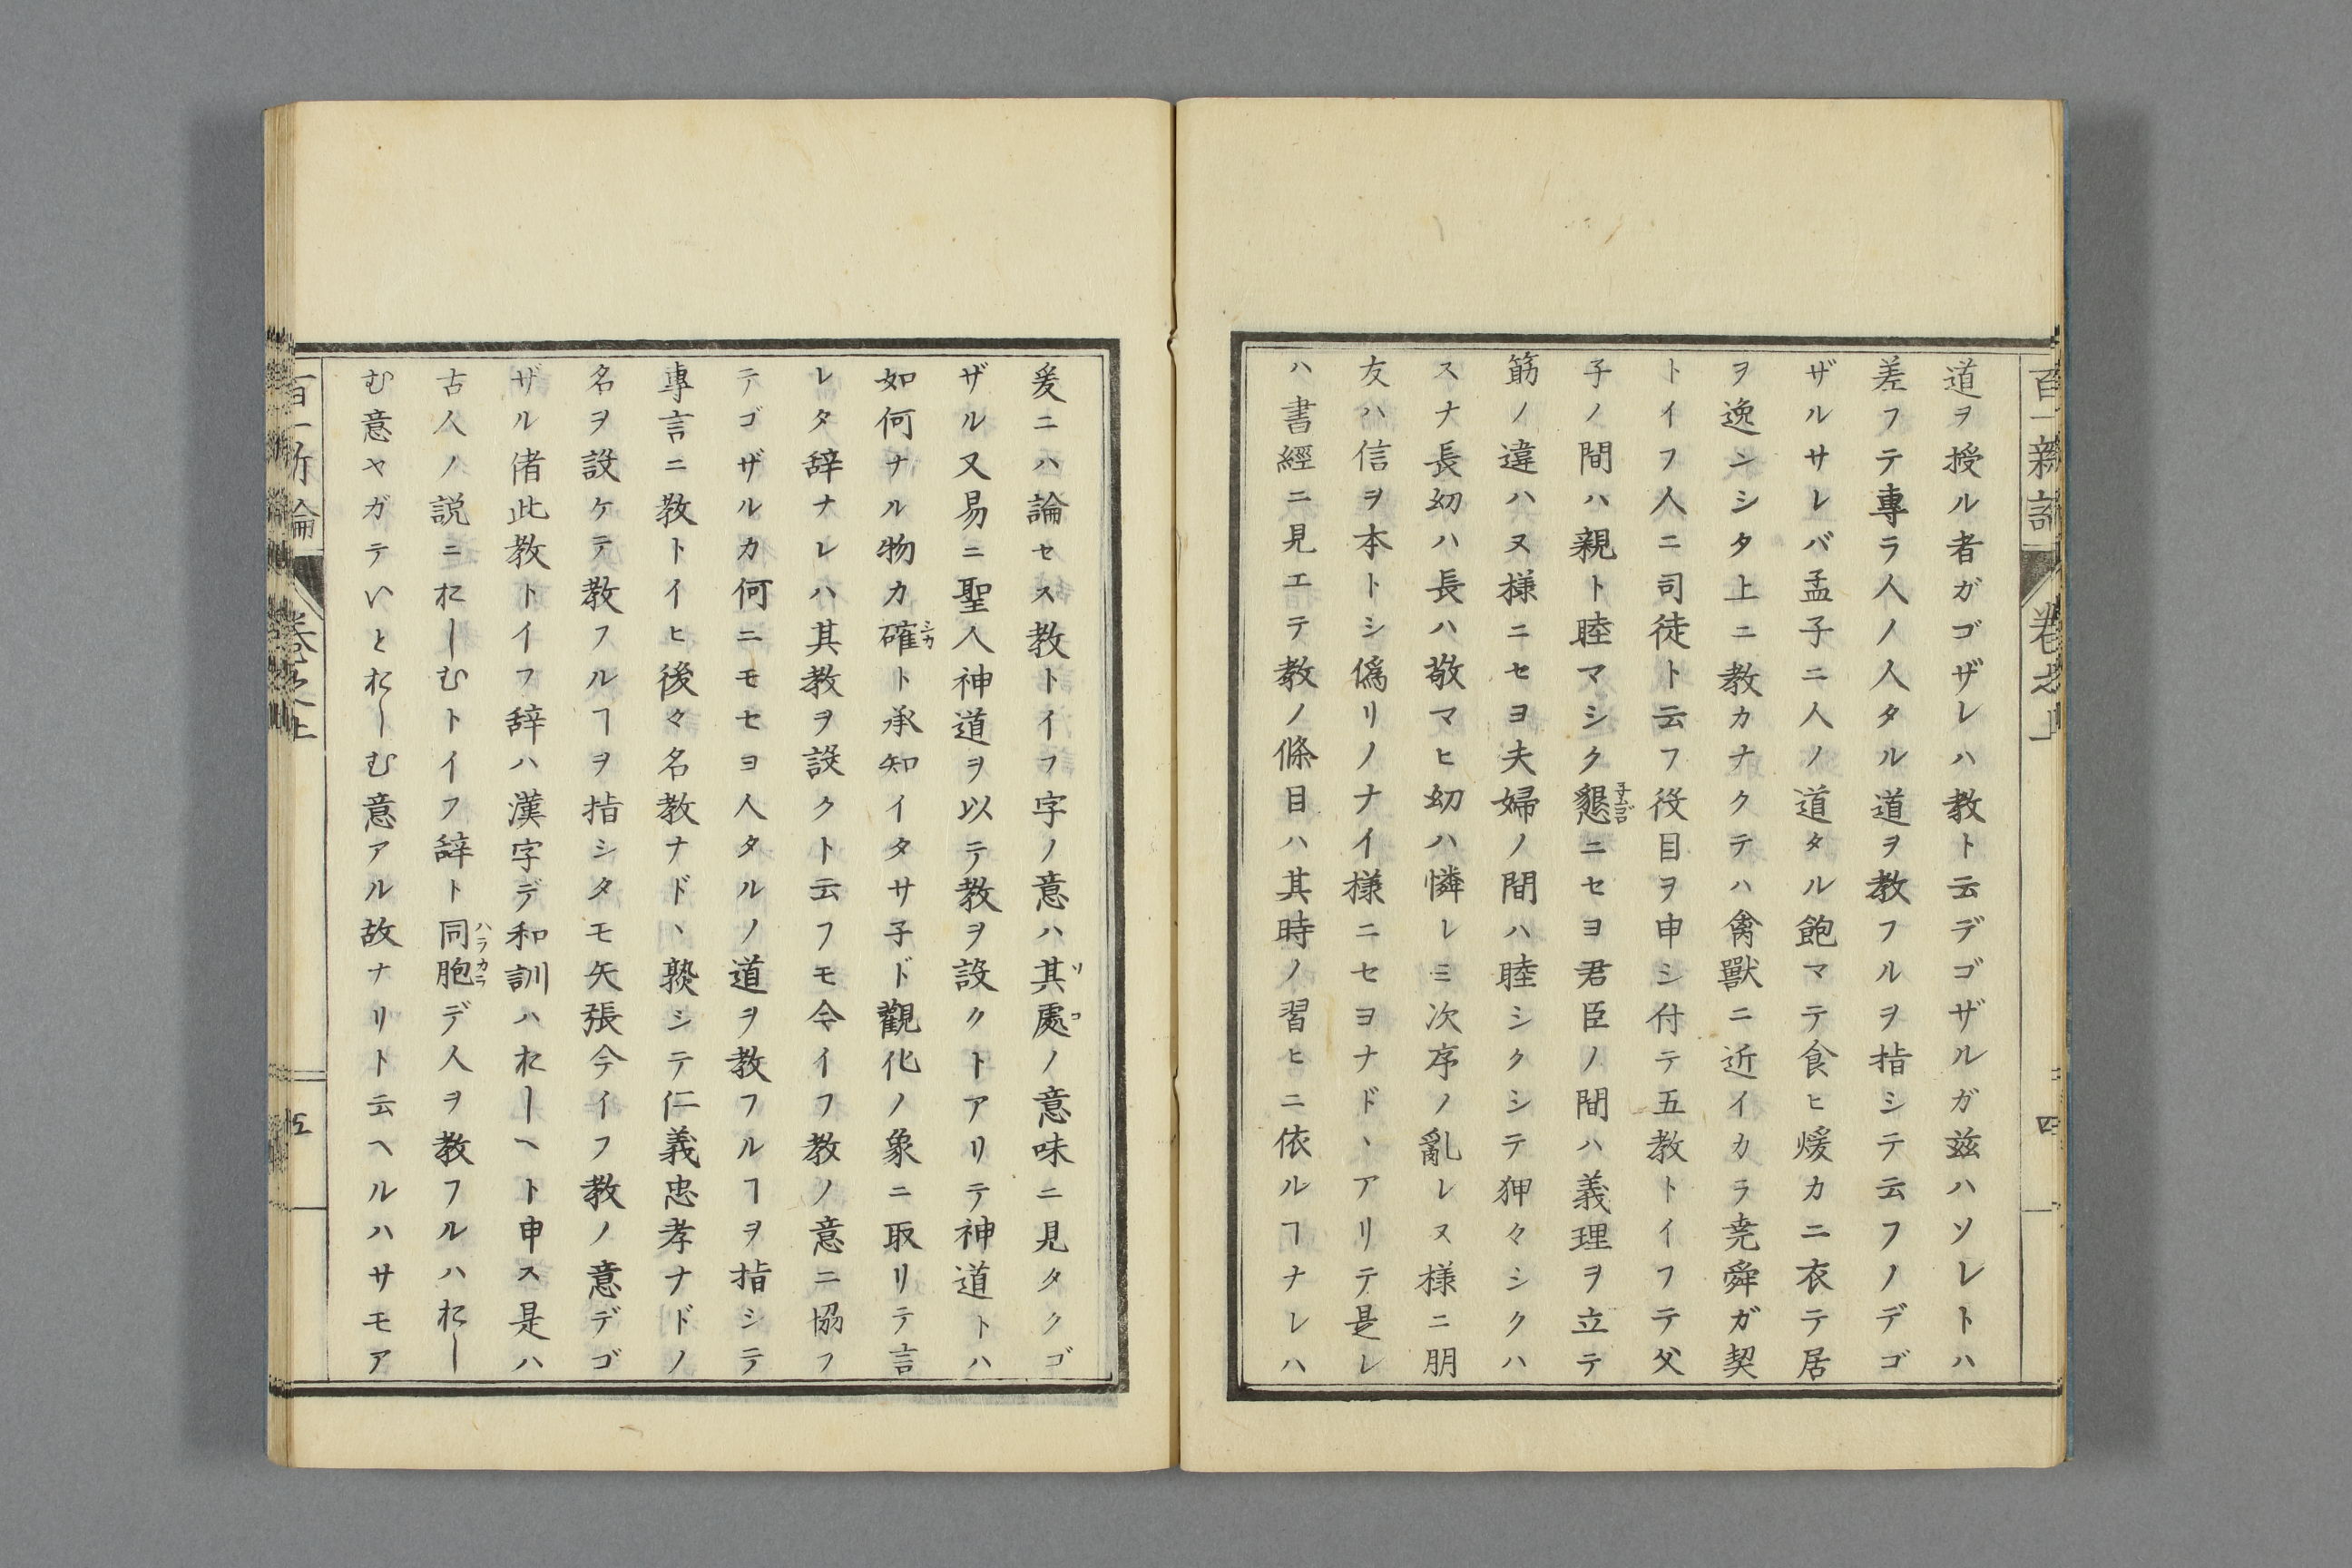 百一新論
卷之上
四
道ヲ授ル者ガゴザレハ教ト云デゴザルガ茲ハソレトハ
差フテ專ラ人ノ人タル道ヲ教フルヲ指シテ云フノデゴ
ザルサレバ孟子ニ人ノ道タル飽マテ食ヒ煖カニ衣テ居
ヲ逸シシタ上ニ教カナクテハ禽獸ニ近イカラ尭舜ガ契
トイフ人ニ司徒ト云フ役目ヲ申シ付テ五教トイフテ父
子ノ間ハ親ト睦マシク懇ニセヨ君臣ノ間ハ義理ヲ立テ
子ムゴロ
筋ノ違ハヌ様ニセヨ夫婦ノ間ハ睦シクシテ狎々シクハ
スナ長幼ハ長ハ敬マヒ幼ハ憐レミ次序ノ亂レヌ様ニ朋
友ハ信ヲ本トシ僞リノナイ様ニセヨナド丶アリテ是レ
ハ書經ニ見エテ教ノ條目ハ其時ノ習ヒニ依ルヿナレハ
爰ニハ論セス教トイフ字ノ意ハ其處ノ意味ニ見タクゴ
ソコ
ザル又易ニ聖人神道ヲ以テ教ヲ設クトアリテ神道トハ
如何ナル物カ確ト承知イタサ子ド觀化ノ象ニ取リテ言
シカ
レタ辞ナレハ其教ヲ設クト云フモ今イフ教ノ意ニ協フ
テゴザルカ何ニモセヨ人タルノ道ヲ教フルヿヲ指シテ
專言ニ教トイヒ後々名教ナド丶熟シテ仁義忠孝ナドノ
名ヲ設ケテ教フルヿヲ指シタモ矢張今イフ教ノ意デゴ
ザル偖此教トイフ辞ハ漢字デ和訓ハおしへト申ス是ハ
古人ノ説ニおしむトイフ辞ト同胞デ人ヲ教フルハおし
ハラカラ
む意ヤガテいとおしむ意アル故ナリト云ヘルハサモア
百一新論
卷之上
五